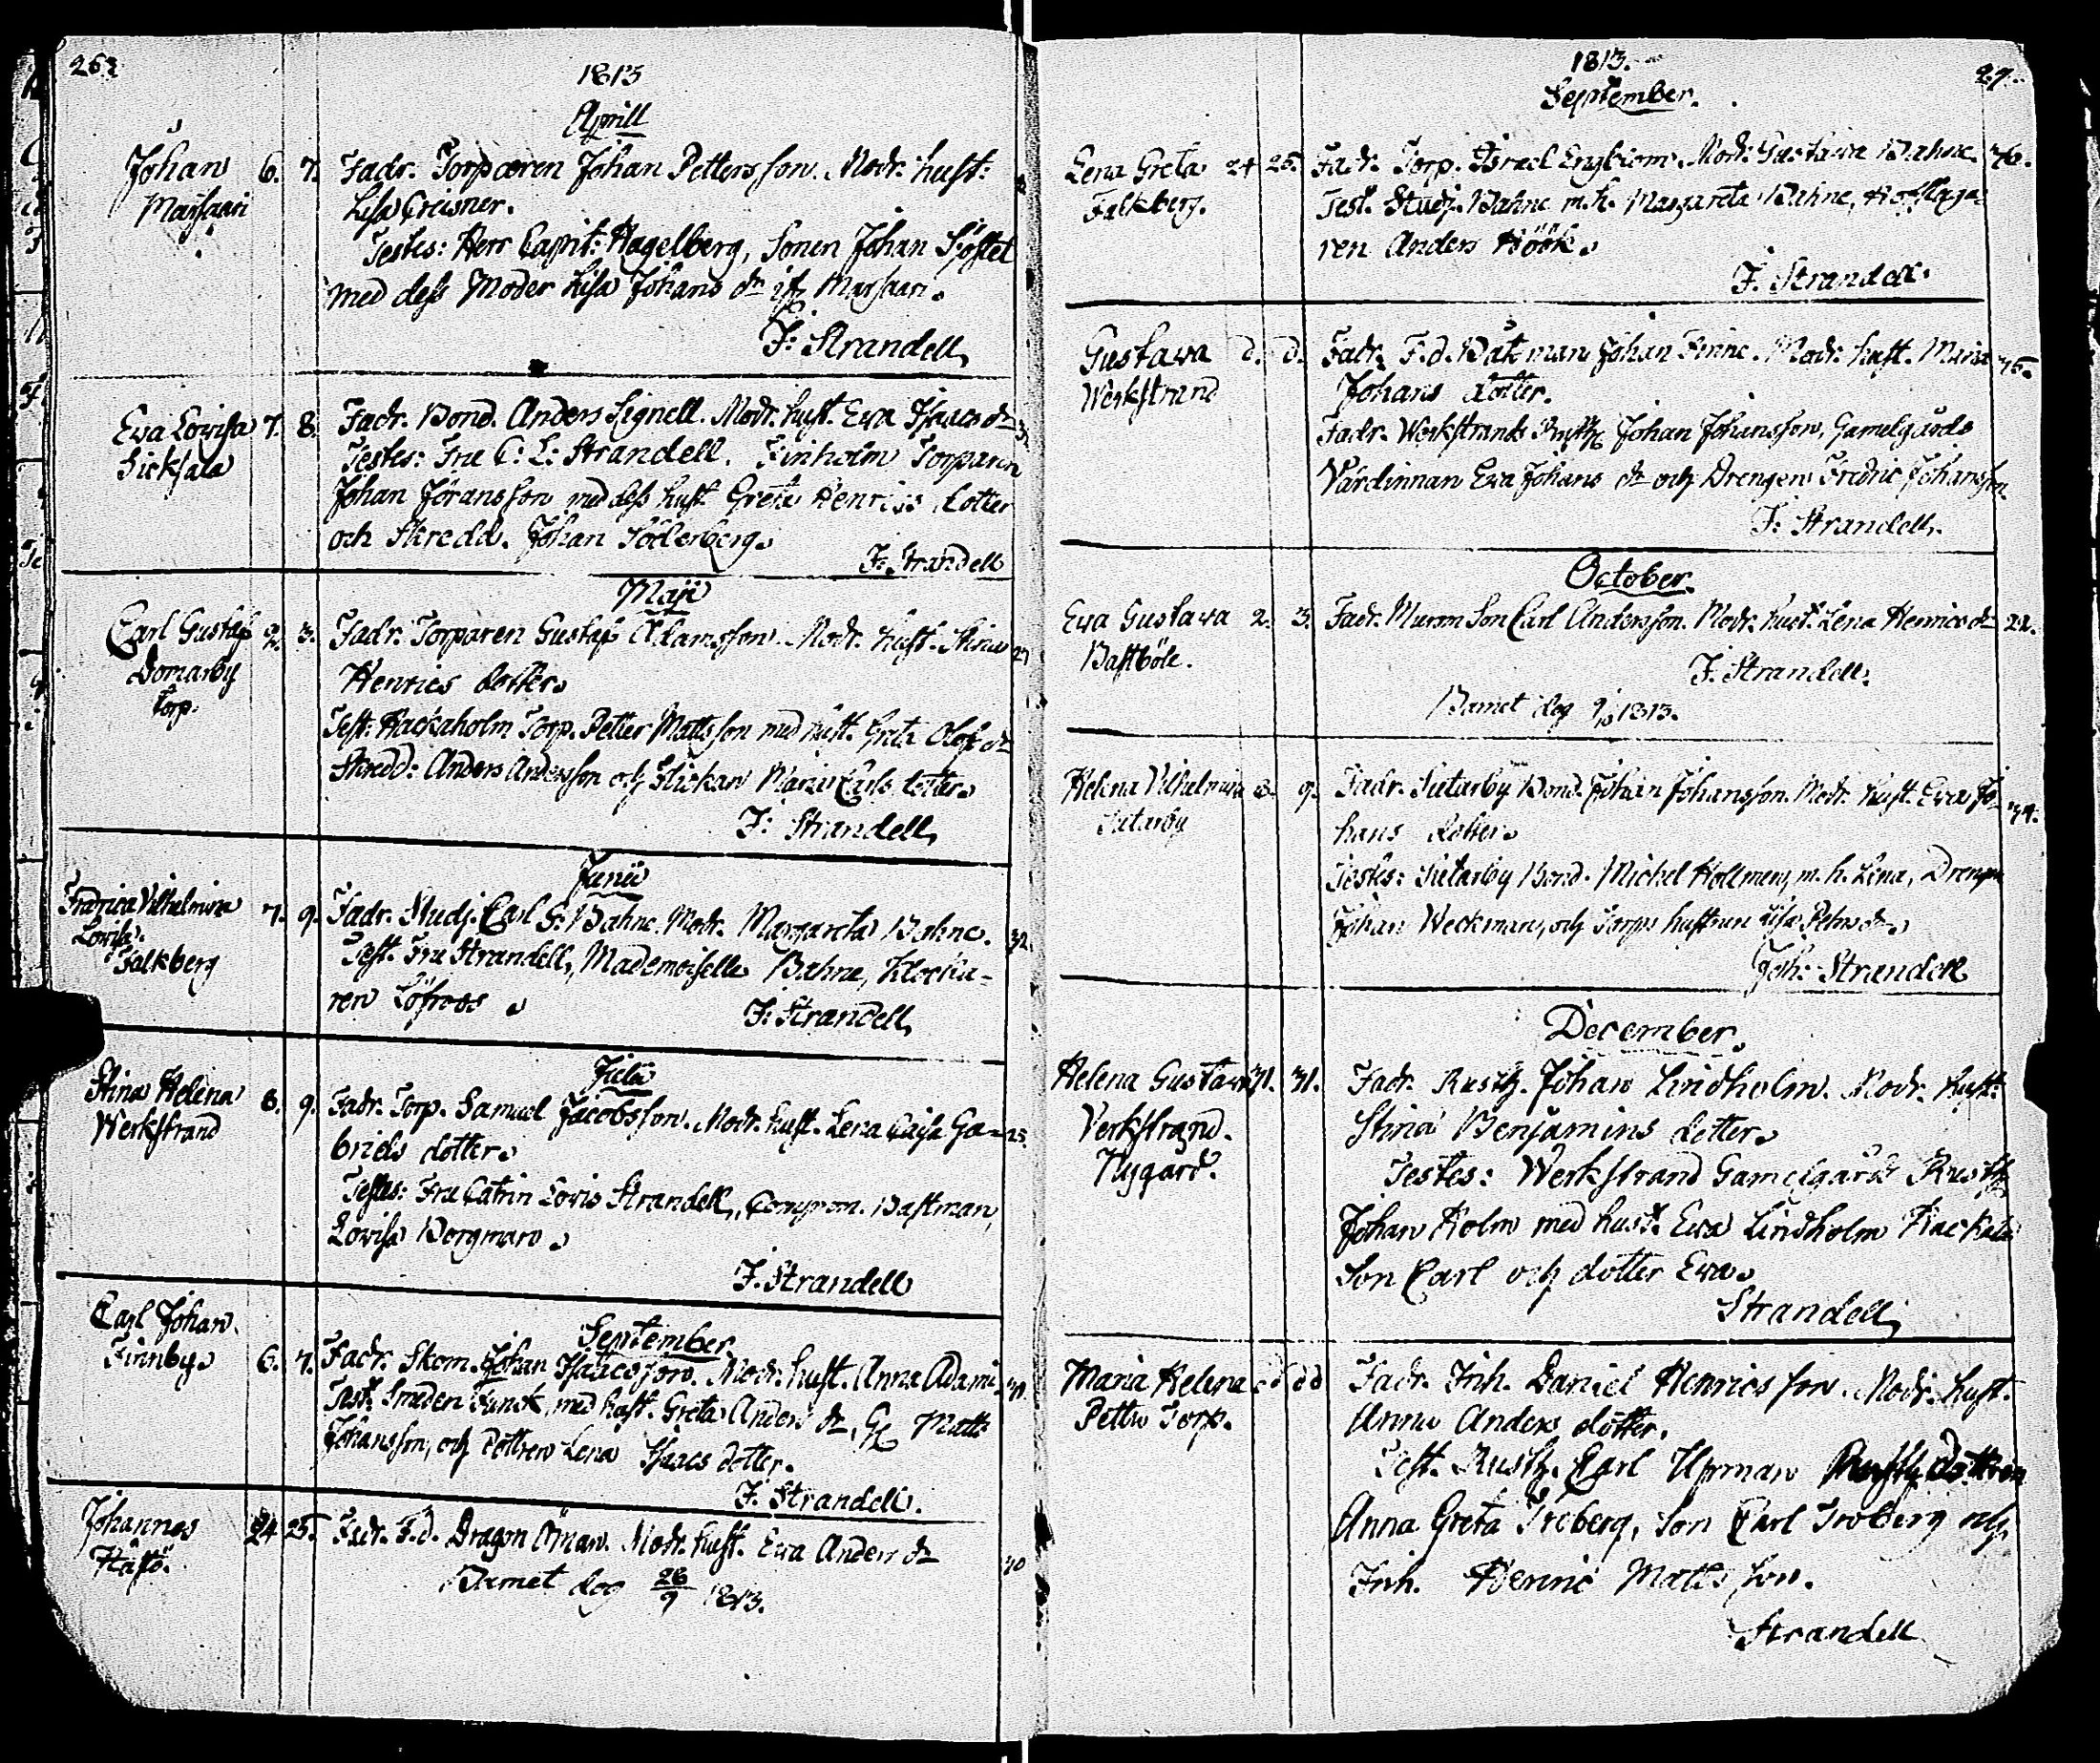 1813
Aprill
Johan 6. 7. Fadr. Torparen Johan Pettersson. Modr. hust:
Marsaari Lisa Creisner.
Testes: Herr Capit: Hagelberg, Sonen Johan Sjöstet
med dess Moder Lisa Johans dr if: Marsaari.
F: Strandell
Eva Lovisa 7. 8. Fadr. Bond. Anders Signell. Modr. hust. Eva Isacs dr
Sicksala Testes: Fru C: L: Strandell. Finholm Torparen
Johan Jöransson med dess hust Greta Henrics dotter
och Skredd. Johan Söderberg.
F: Strandell
Maji
Carl Gustaf 2. 3. Fadr. Torparen Gustaf Adamsson. Modr. hust. Stina 27
Domarby Henrics dotter.
Torp. Test. Hackaholm Torp. Petter Mattsson med hust. Greta Olofs dr
Skredd: Anders Andersson och Flickan Maria Carls dotter.
F: Strandell
Junii
Fredrica Vilhelmina 7. 9. Fadr. Studj. Carl G. Bahne. Modr. Margareta Bahne. 32.
Lovisa. Test. Fru Strandell, Mademoiselle Bahne, Klocka-
Falkberg ren Löfroos.
F: Strandell
Julii
Stina Helena 8. 9. Fadr. Torp. Samuel Jacobsson. Modr. hust. Lena Caisa Ga- 25.
Werkstrand briels dotter.
Testes: Fru Catrin Lovis Strandell, Compron. Bastman,
Lovisa Borgman.
F. Strandell
September
Carl Johan
Finnby 6. 7. Fadr. Skom. Johan Isaacsson. Modr. hust. Anna Adams
Test. Smeden Funck, med hust. Greta Anders dr, G: Matts
Johansson, och Dottren Lena Isaacs dotter.
F. Strandell.
Johannes 24. 25. Fadr. F.d. Dragon Öman. Modr. hust. Eva Anders dr 40
Hästö. Barnet dog 26/9 1813.
1813.
27.
September.
Lena Greta 24 25. Fadr. Torp. Israel Engblom. Modr. Gustava Bahne. 36.
Falkberg. Test. Studj. Bahne m.h. Margareta Bahne, Hofslaga-
ren Anders Höök.
F. Strandell.
Gustava d. d. Fadr. F.d. Båtsman Johan Finne. Modr. hust. Maria 36.
Werkstrand Johans dotter.
Fadr. Werkstrands Rusth: Johan Johansson, Gamelgårds
Värdinnan Eva Johans dr och Drengen Fredric Johansson
F: Strandell.
October.
Eva Gustava 2. 3. Fadr. Murm Son Carl Andersson. Modr. hust. Lena Henrics dr 22.
Bastböle. F. Strandell.
Barnet dog 9/10 1813.
Helena Vilhelmina 8. 9. Fadr. Sutarby Bond. Johan Johansson. Modr. hust. Eva Jo- 34.
Sutarby hans dotter.
Testes: Sutarby Bond. Michel Hollmen, m. h. Lena, Drengen
Johan Weckman, och Torps hustrun Lisa Pehrs dr.
Joh: Strandell
December.
Helena Gustava 31. 31. Fadr. Rusth. Johan Lindholm. Modr. hust:
Verkstrand. Stina Benjamins dotter.
Nygård. Testes: Werkstrand Gamelgårds Rusth
Johan Holm med hust. Eva Lindholm Hackala
Son Carl och dotter Eva.
Strandell
Maria Helena dd dd Fadr. Inh. Daniel Henricsson. Modr. hust.
Pettu Torp. Anna Anders dotter.
Test. Rusth. Carl Upman Rusth dottren
Anna Greta Troberg, Son Carl Troberg och
Inh. Henric Mattsson.
Strandell